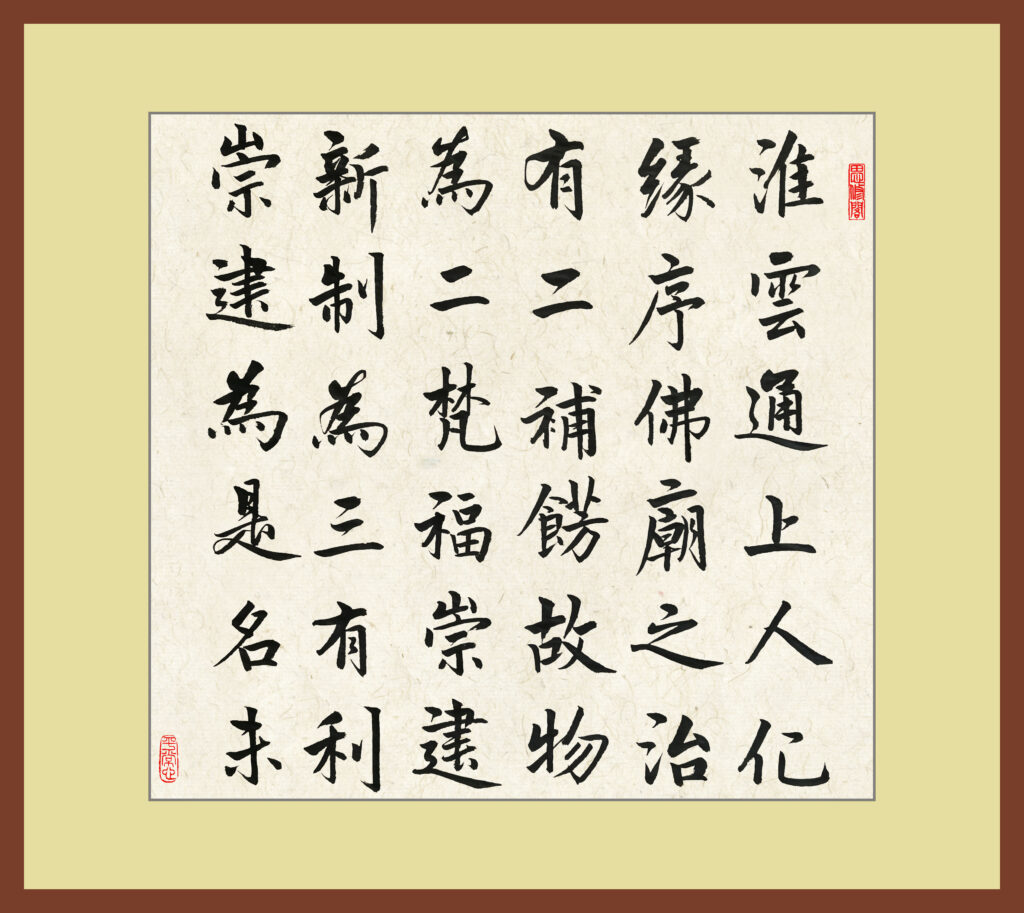 淮雲通上人化
緣序佛廟之治
有二補餝故物
為二梵福崇建
新制為三有利
崇建為是名未
思修閣
平常心